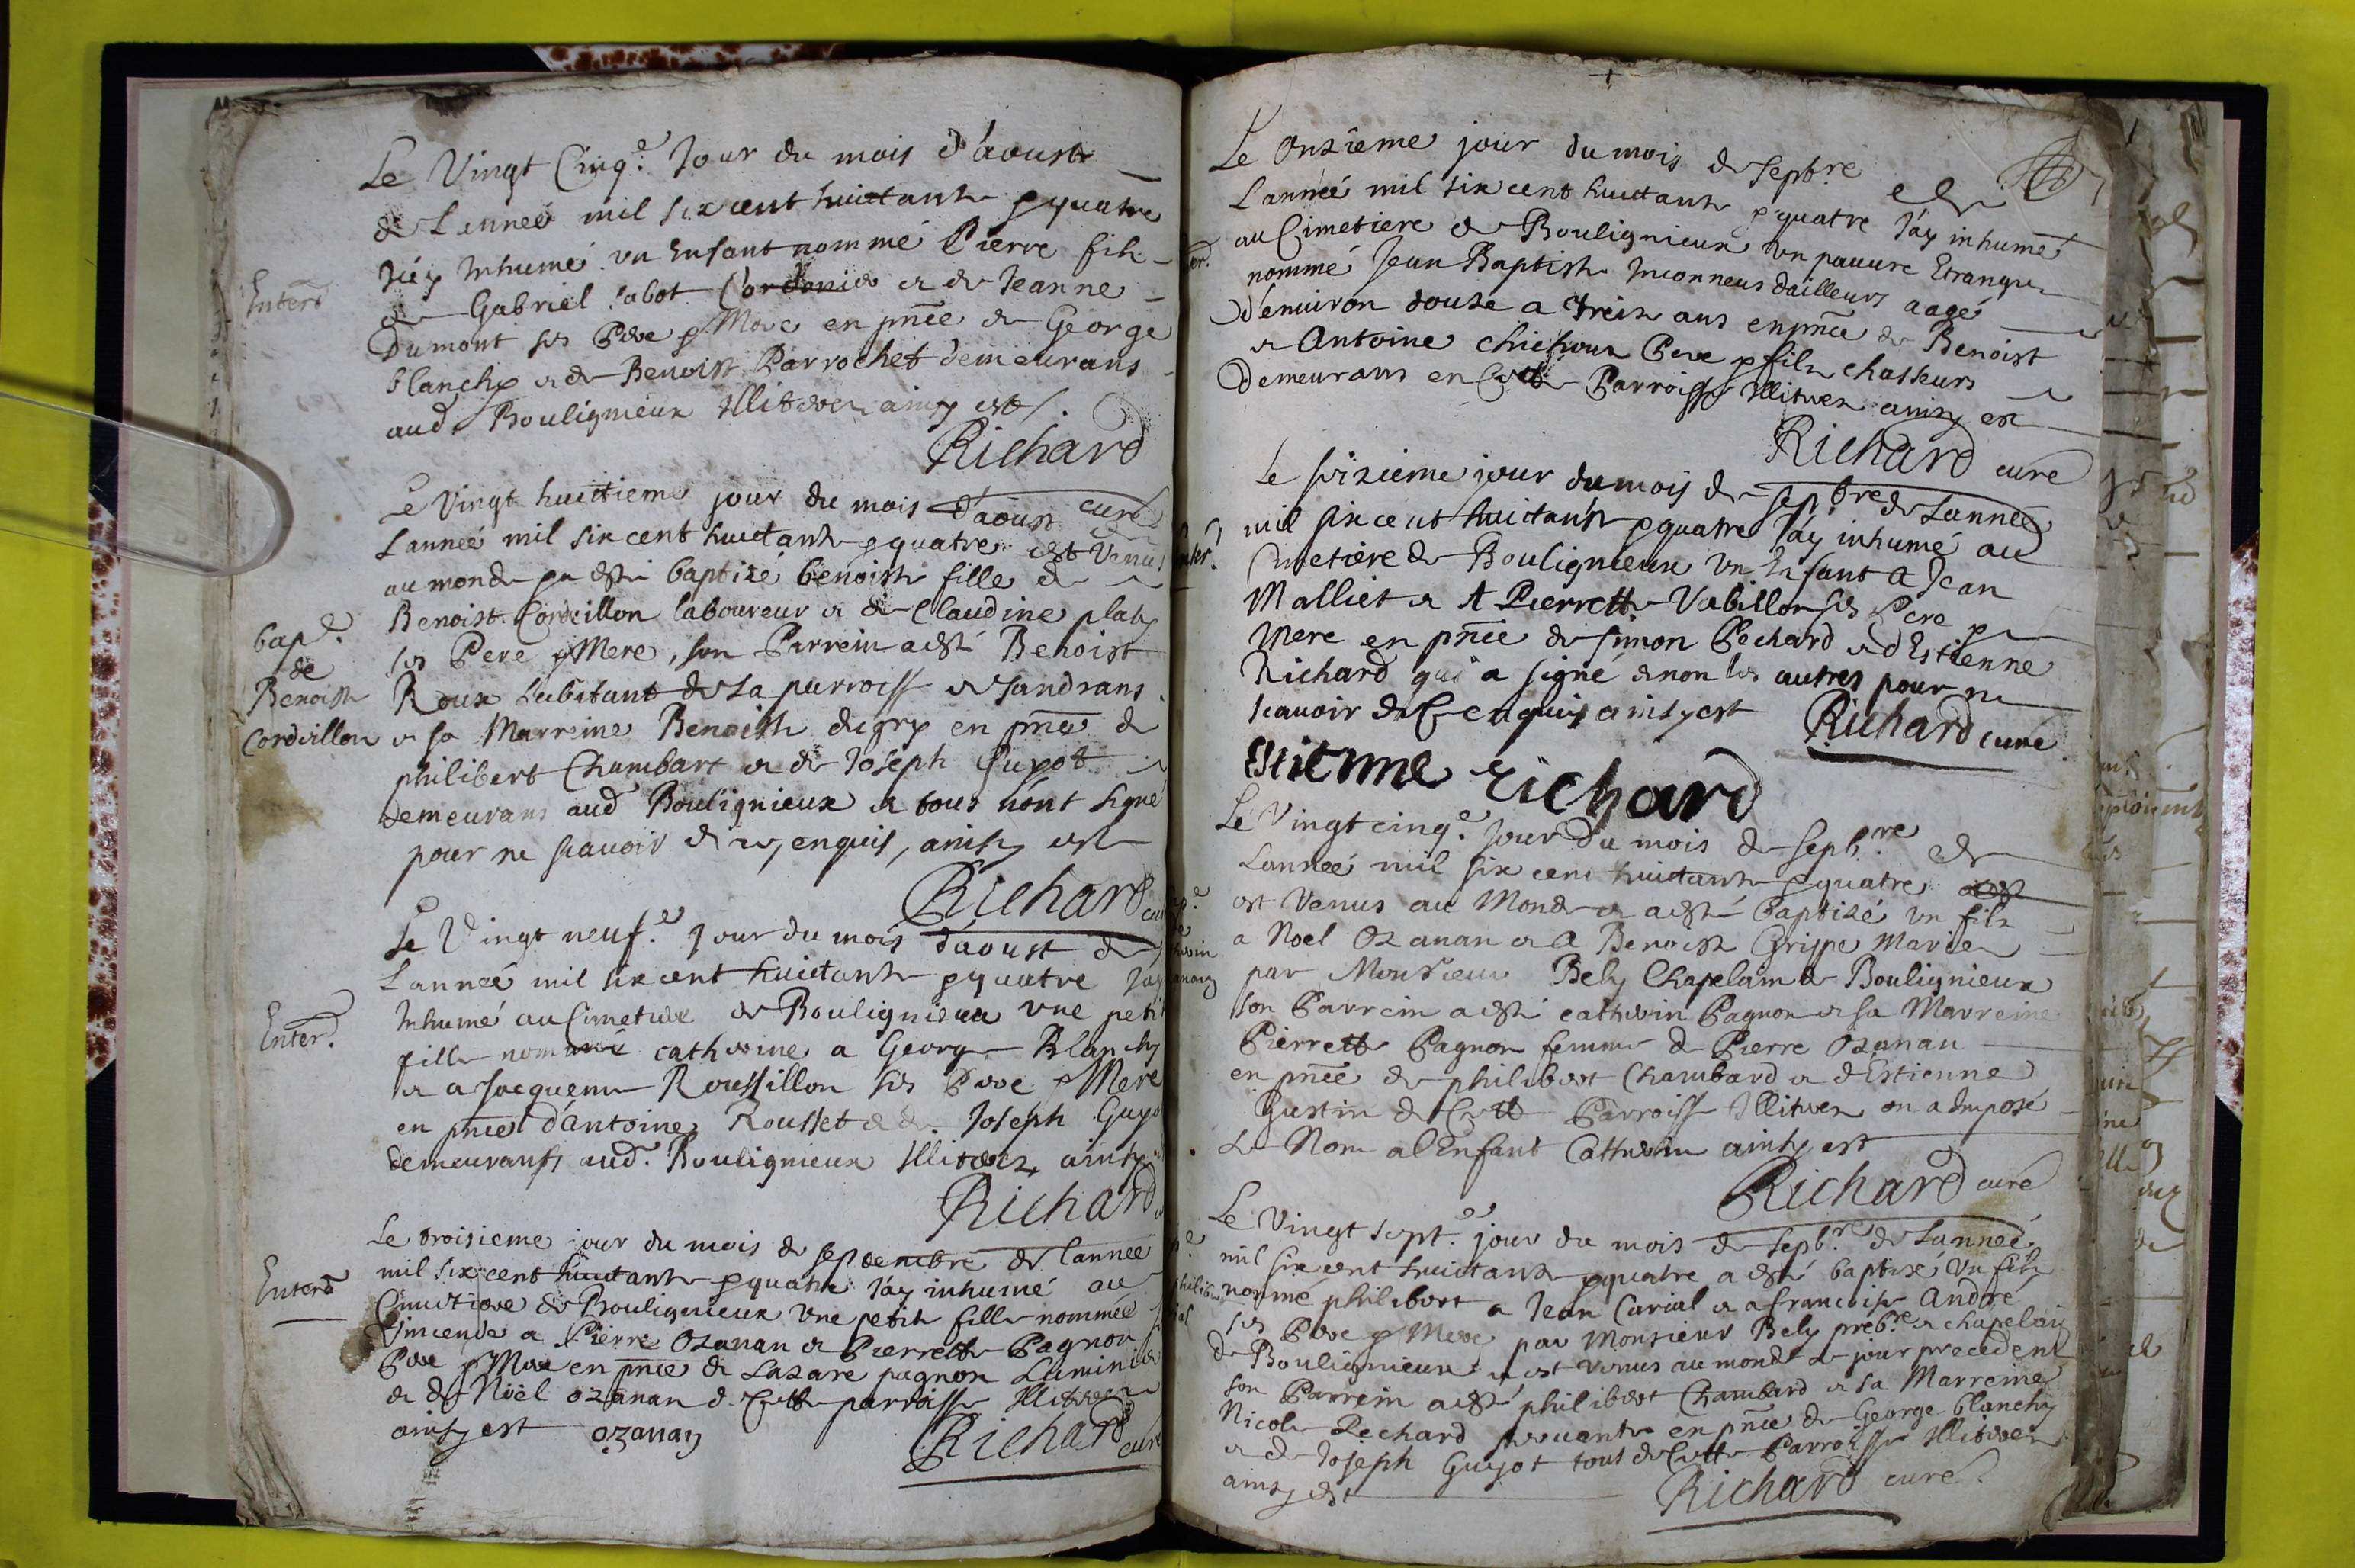 Le Vingt Cinq.e Jour du mois d'áoust
de L'année mil six cent huictante & quatre
J'áy Inhumé vn Enfant nommé Pierre fils
Enterrt
de Gabriel Sabot Cordonier & de Jeanne
Dumont ses Pere & Mere en pnce de George
blanchy & de Benoist Parrochet demeurans
aud. Boulignieux Illiterez ainsy est.
Richard
curé
Le Vingt huittieme jour du mois d'aoust
L'anneé mil six cent huictante & quatre est Venus
au monde & a esté baptizé benoiste fille de
Benoist Cordeillon laboureur & de Claudine platy
bap.e
de
Benoiste
Cordeillon
ses Pere & Mere, son Parrein a esté Benoist
Roux habitant de la parroisse de Sandrans
& sa Marreine Benoiste digry en pnce de
philibert Chambart & de Joseph Guyot
demeurans aud. Boulignieux & tous n'ont signé
pour ne scauoir de ce, enquis, ainsy est
Richard
Le Vingt neuf.e Jour du mois d'áoust de
L'anneé mil six cent huictante & quatre Jay
Inhumé au Cimetiere de Boulignieux vne petite
Enterr.
fille nommé catherine a George Blanchy
& a Jacqueme Roussillon ses Pere & Mere
en pnce d'ántoine Rousset & de Joseph Guyot
demeurants aud. Boulignieux Illiterez, ainsy
Richard
Le troisieme jour du mois de septembre de l'année
mil six cent huictante & quatre J'áy inhumé au
Enterrt
Cimetiere de Boulignieux Vne petite fille nommée
Vincende a Pierre Ozanan & Pierrette Pagnon
Pere & Mere en pnce de Lazare pagnon
& de Noël ozanan de Cette parroisse Illiterez
ainsy est ozanan Richard curé
Le Onzieme jour du mois de Septbre de
L'anneé mil six cent huictante & quatre J'áy inhumé
au Cimetiere de Boulignieux vn pauure Etranger
nommé Jean Baptiste Inconneus d'ailleurs aagé
d'enuiron douze a treize ans en pnce de Benoist
& Antoine Pere & filz chasseurs
demeurans en Cette Parroisse Illiterez ainsy est
Richard curé
Le seizieme jour du mois de sepbre de L'anneé
mil six cent huictante & quatre J'áy inhumé au
Cimetiere de Boulignieux vn Enfant a Jean
Malliet & A Pierrette Vabillon ses Pere &
Mere en pnce de simon Pechard & d'Estienne
Richard qui a signé & non les autres pour ne
scauoir de Ce enquis ainsy est
Richard curé
Estienne Richard
Le Vingt cinq.e Jour du mois de sepb.re de
L'anneé mil six cent huictante & quatre
est Venus au Monde & a esté Baptizé vn filz
a Noel Ozanan & a Benoiste Grippe Mariez
par Monsieur Bely Chapelain de Boulignieux
son Parrein a esté catherin Pagnon & sa Marreine
Pierrette Pagnon femme de Pierre Ozanan
en pnce de philibert Chambard & d'Estienne
Gustin de Cette Parroisse Illiterez on a Imposé
Le Nom a l'Enfant Catherin ainsy est
Richard curé
Le Vingt sept.e jour du mois de sepb.re de L'anneé
mil six cent huictante & quatre a esté baptizé Vn filz
nommé philibert a Jean Curial & a francoise André
ses Pere & Mere par Monsieur Bely preb.re & chapelain
de Boulignieux & est venus au monde le jour precedent
son Parrein a esté philibert Chambard & sa Marreine
Nicole Pechard seruante en pnce de George blanchy
& de Joseph Guyot tous de Cette Parroisse Illiterez
ainsy est
Richard curé